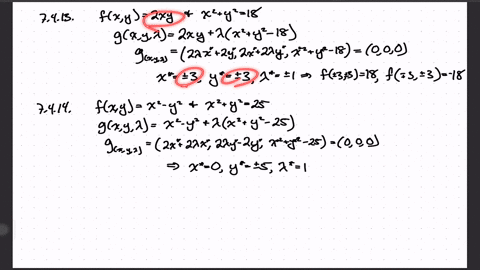 7.4.13. f(x,y)=2xy & x²+y²=18
g(x,y,λ)=2xy+λ(x²+y²-18)
g(x,y,λ)=(2λx*+2y*, 2x*+2λy*, x*²+y*²-18)=(0,0,0)
x*=±3, y*=±3, λ*=±1 ⇒ f(±3,±3)=18, f(∓3,±3)=-18
7.4.14. f(x,y)=x²-y² & x²+y²=25
g(x,y,λ)=x²-y²+λ(x²+y²-25)
g(x,y,λ)=(2x*+2λx*, 2λy*-2y*, x*²+y*²-25)=(0,0,0)
⇒ x*=0, y*=±5, λ*=1